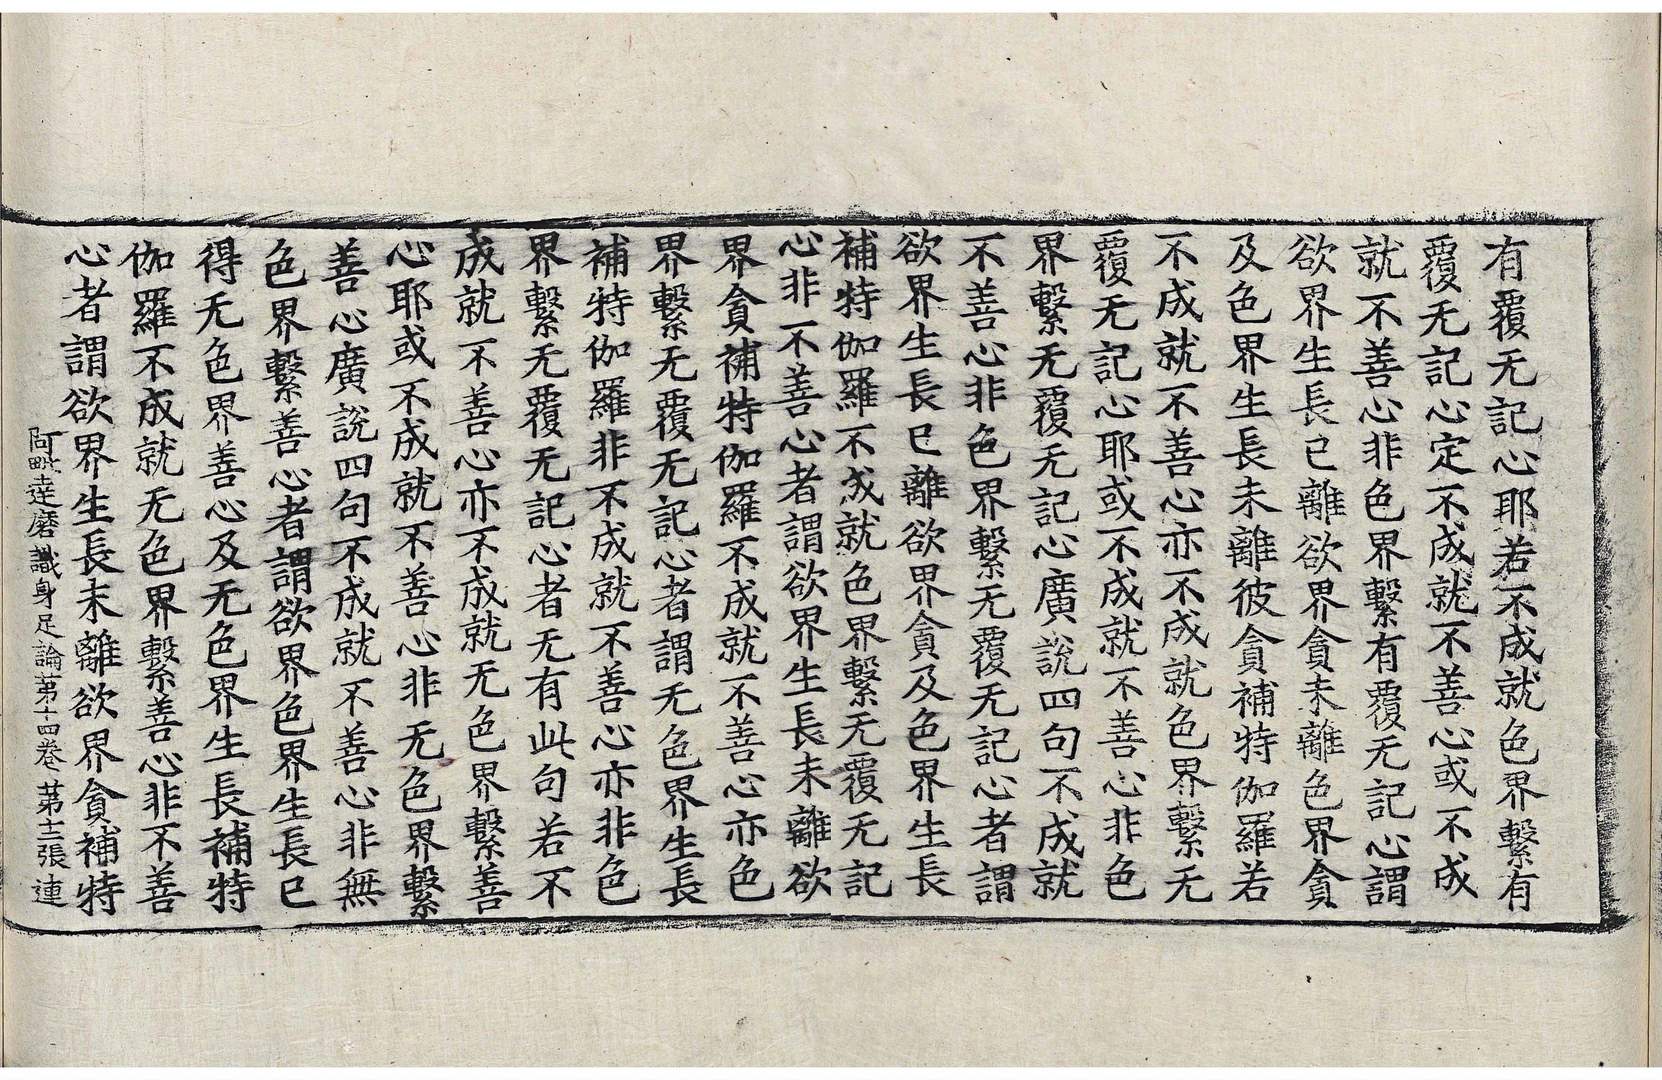 有覆无記心耶若不成就色界繫有
覆无記心定不成就不善心或不成
就不善心非色界繫有覆无記心謂
欲界生長已離欲界貪未離色界貪
及色界生長未離彼貪補特伽羅若
不成就不善心亦不成就色界繫无
覆无記心耶或不成就不善心非色
界繫无覆无記心廣說四句不成就
不善心非色界繫无覆无記心者謂
欲界生長已離欲界貪及色界生長
補特伽羅不成就色界繫无覆无記
心非不善心者謂欲界生長未離欲
界貪補特伽羅不成就不善心亦色
界繫无覆无記心者謂无色界生長
補特伽羅非不成就不善心亦非色
界繫无覆无記心者无有此句若不
成就不善心亦不成就无色界繫善
心耶或不成就不善心非无色界繫
善心廣說四句不成就不善心非無
色界繫善心者謂欲界色界生長已
得无色界善心及无色界生長補特
伽羅不成就无色界繫善心非不善
心者謂欲界生長未離欲界貪補特
阿毗達磨識身足論第十四卷 第十二張 連